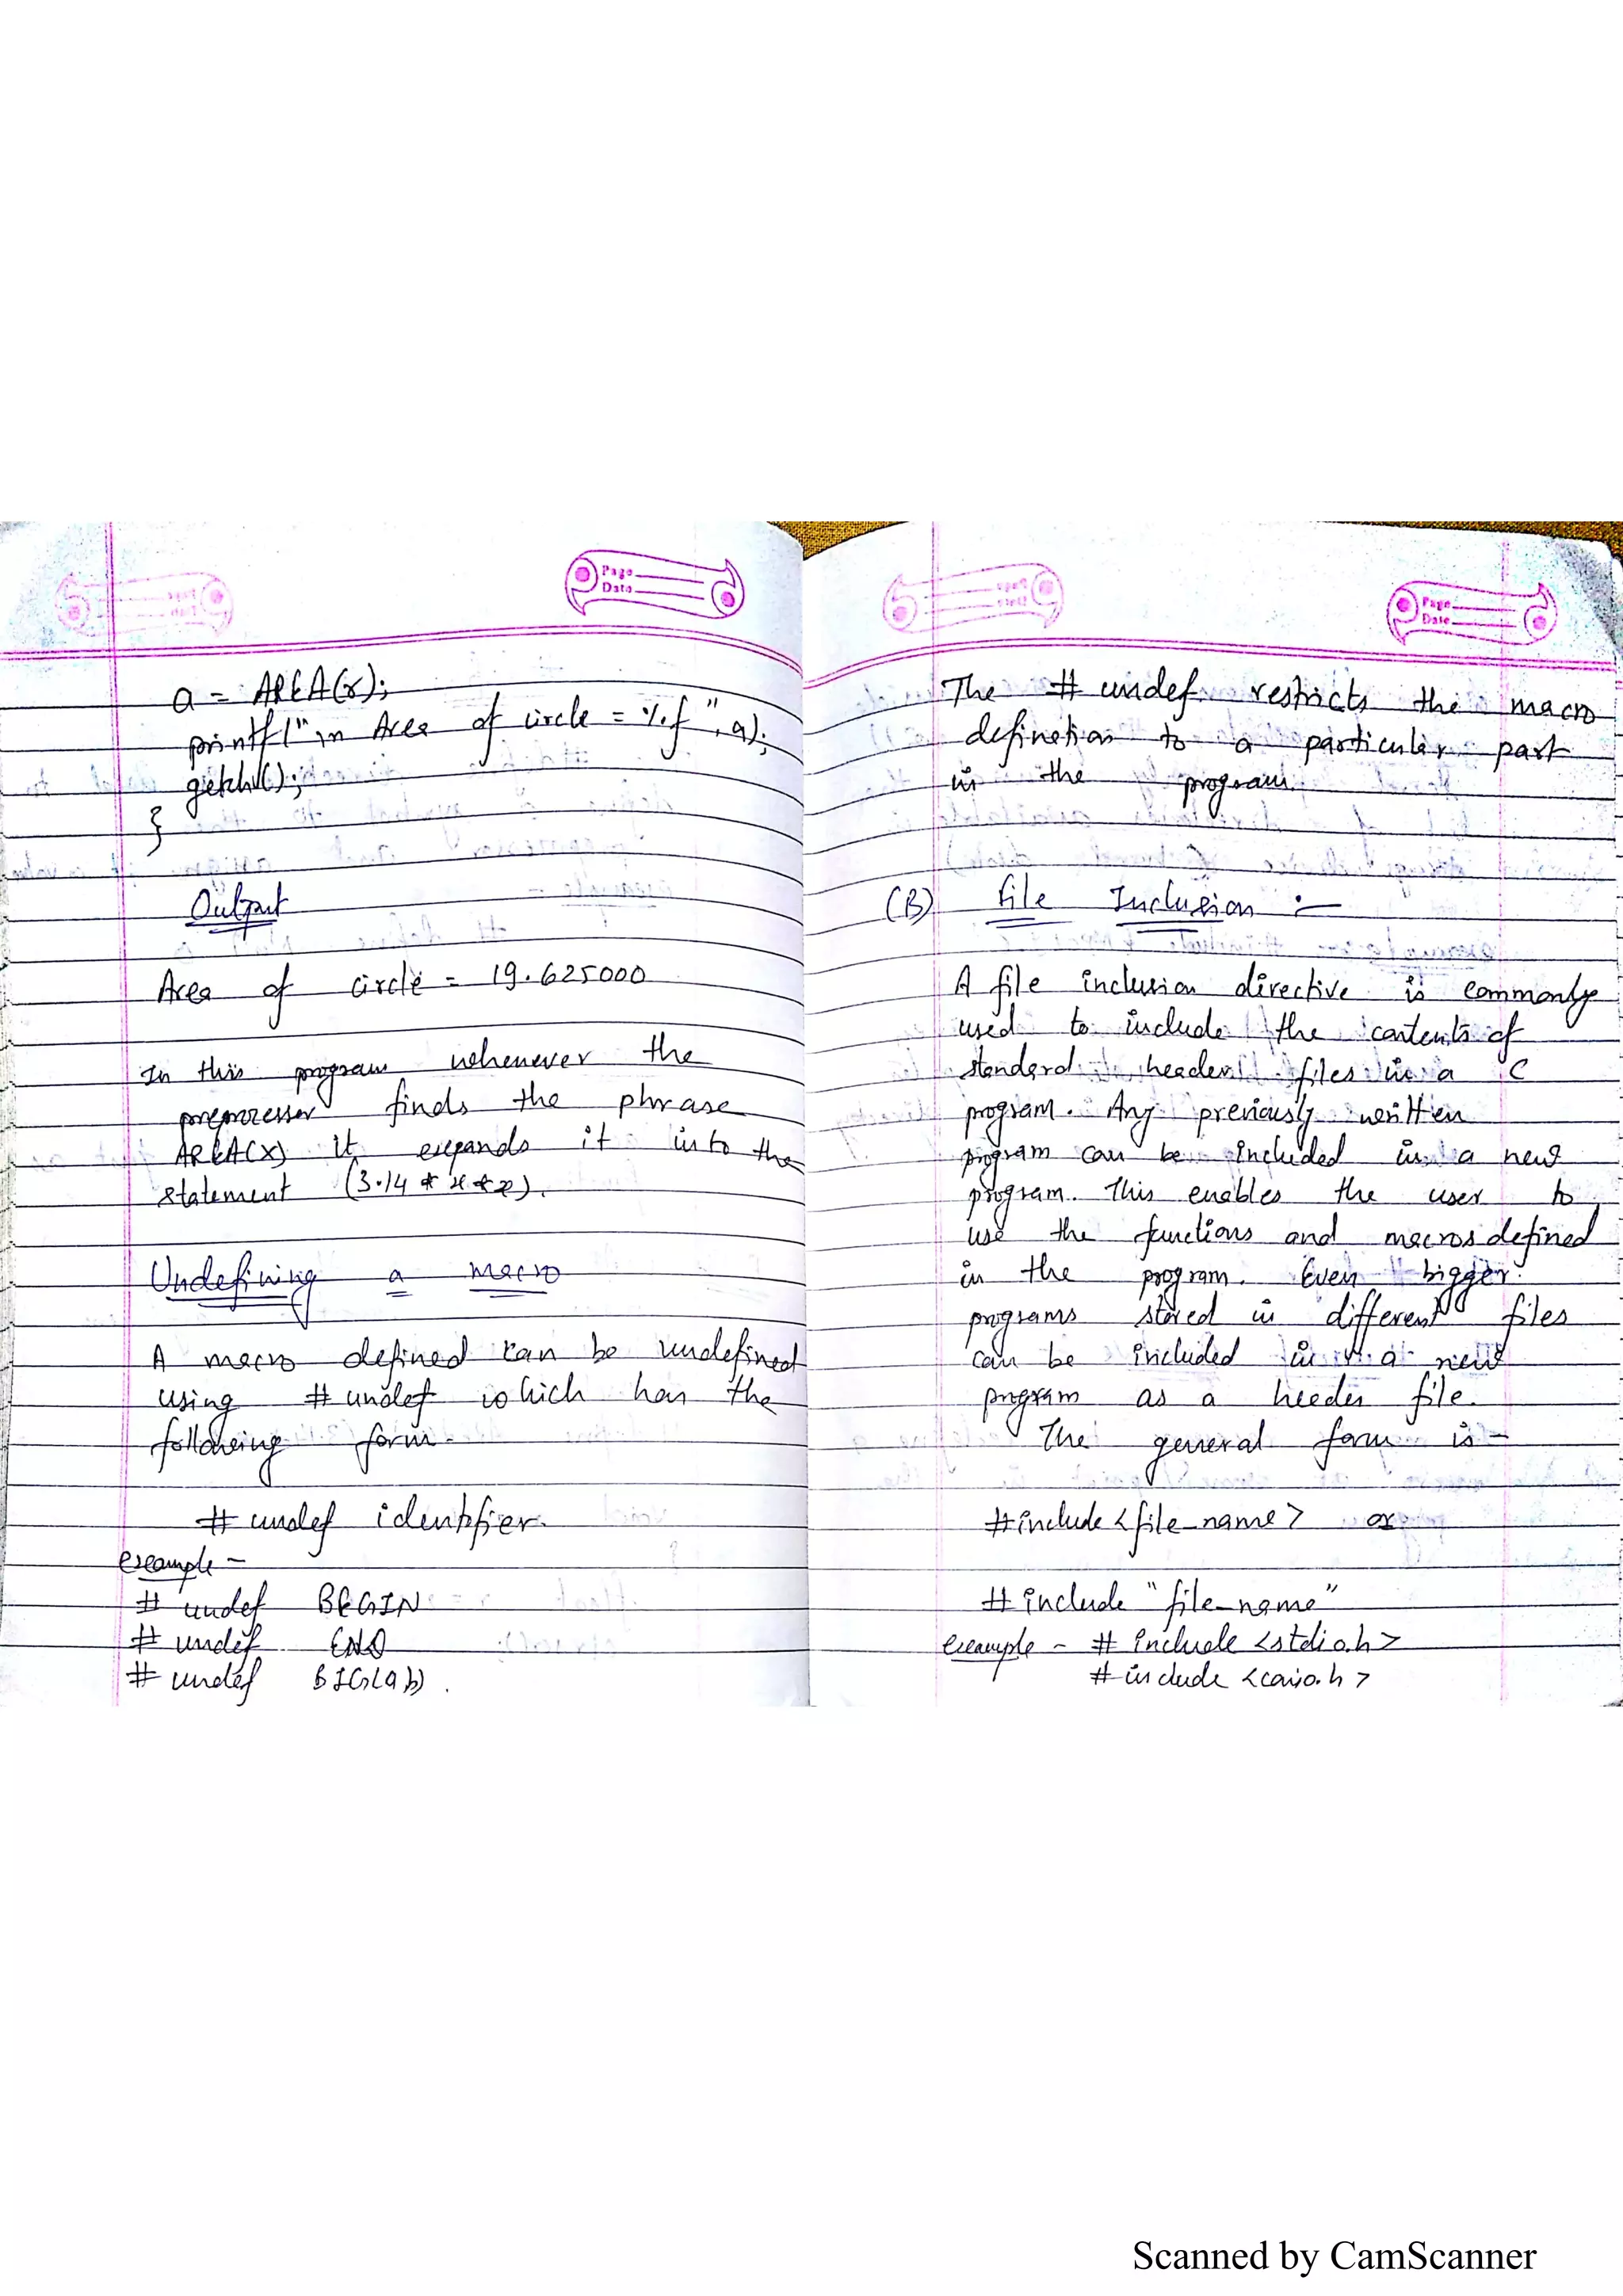 Page
Date
a = AREA(r);
printf("\n Area of circle = %f", a);
getch();
}
Output
Area of circle = 19.625000
In this program whenever the
preprocessor finds the phrase
AREA(X) It expands it into the
statement (3.14 * x * x).
Undefining a macro
A macro defined can be undefined
using #undef which has the
following form-
# undef identifier.
example -
# undef BEGIN
# undef END
# undef BIG(a,b).
Page
Date
The # undef restricts the macro
definetion to a particular part
in the program.
(B) File Inclusion :-
A file inclusion directive is commonly
used to include the contents of
standard header files in a C
program. Any previously written
program can be included in a new
program. This enables the user to
use the functions and macros defined
in the program. Even bigger
programs stored in different files
can be included in a new
program as a header file.
The general form is -
#include <file_name> or
# include "file_name"
example - # include <stdio.h>
# include <conio.h>
Scanned by CamScanner